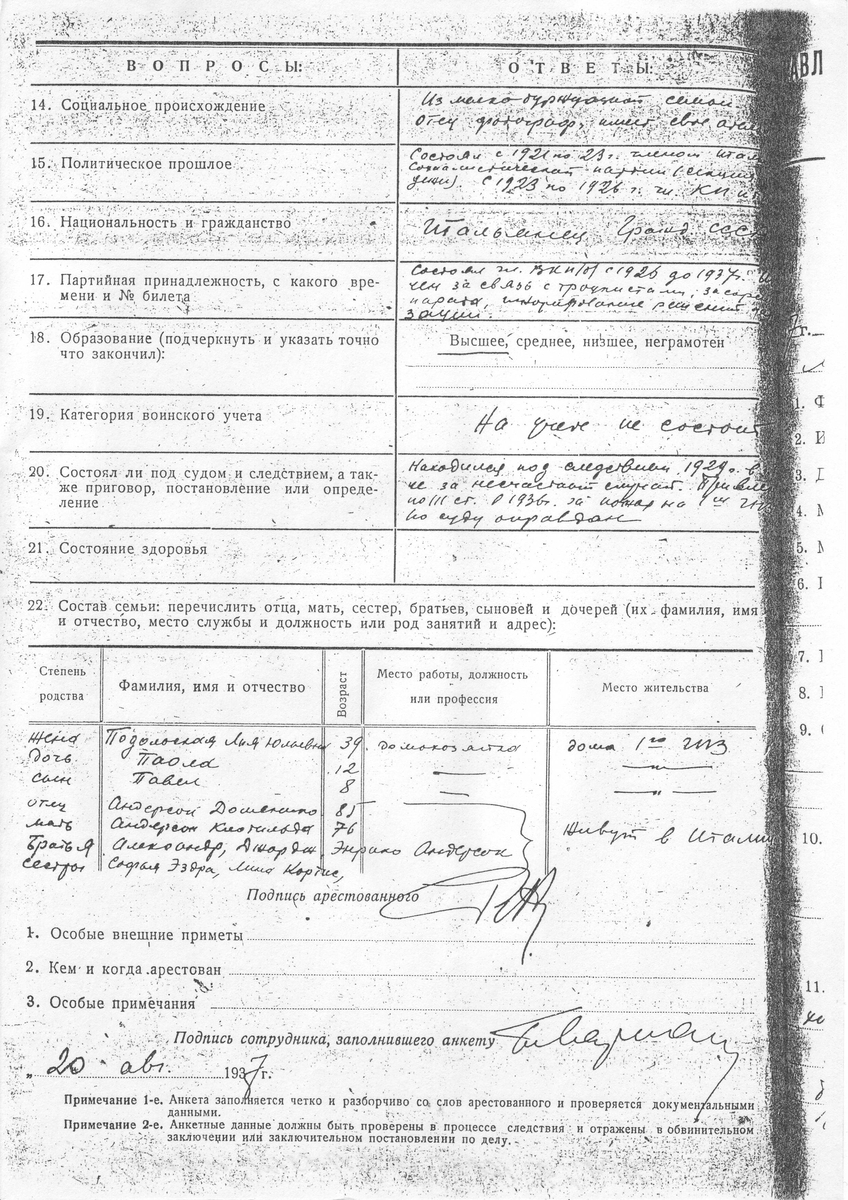 ВОПРОСЫ: ОТВЕТЫ:
14. Социальное происхождение
Из мелко буржуазной семьи
Отец фотограф, имеет свое
15. Политическое прошлое
Состоял с 1921 по 23 г. членом
Социалистической партии
с 1923 по 1926 г. чл. КП
16. Национальность и гражданство
Итальянец Гражд. СССР
17. Партийная принадлежность, с какого вре-
мени и № билета
Состоял чл. ВКП(б) с 1926 до 1937 г.
чен за связь с троцкистами,
парата, игнорирование решений
зации.
18. Образование (подчеркнуть и указать точно
что закончил):
Высшее, среднее, низшее, неграмотен
19. Категория воинского учета
На учете не состоит
20. Состоял ли под судом и следствием, а так-
же приговор, постановление или опреде-
ление
Находился под следствием 1929 г. в
не за несчастный случай.
по III ст. в 1936 г. за пожар на 1ом ГПЗ
По суду оправдан
21. Состояние здоровья
22. Состав семьи: перечислить отца, мать, сестер, братьев, сыновей и дочерей (их фамилия, имя
и отчество, место службы и должность или род занятий и адрес):
Степень родства Фамилия, имя и отчество Возраст Место работы, должность или профессия Место жительства
жена Подольская Лия Юльевна 39 домохозяйка дома 1го ГПЗ
дочь Паола 12 — — „ —
сын Павел 8 — — „ —
отец Андерсон Доменико 85
мать Андерсон Клотильда 76 Живут в Италии
Братья Александр, Джордж, Энрико Андерсон
Сестры Софья Эздра, Лина Кортис,
Подпись арестованного
1. Особые внешние приметы
2. Кем и когда арестован
3. Особые примечания
Подпись сотрудника, заполнившего анкету
„ 20 авг. 1937 г.
Примечание 1-е. Анкета заполняется четко и разборчиво со слов арестованного и проверяется документальными
данными.
Примечание 2-е. Анкетные данные должны быть проверены в процессе следствия и отражены в обвинительном
заключении или заключительном постановлении по делу.
АВЛ
г.
1. Ф
2. И
3. Д
4. М
5. М
6.
7.
8.
9.
10.
11.